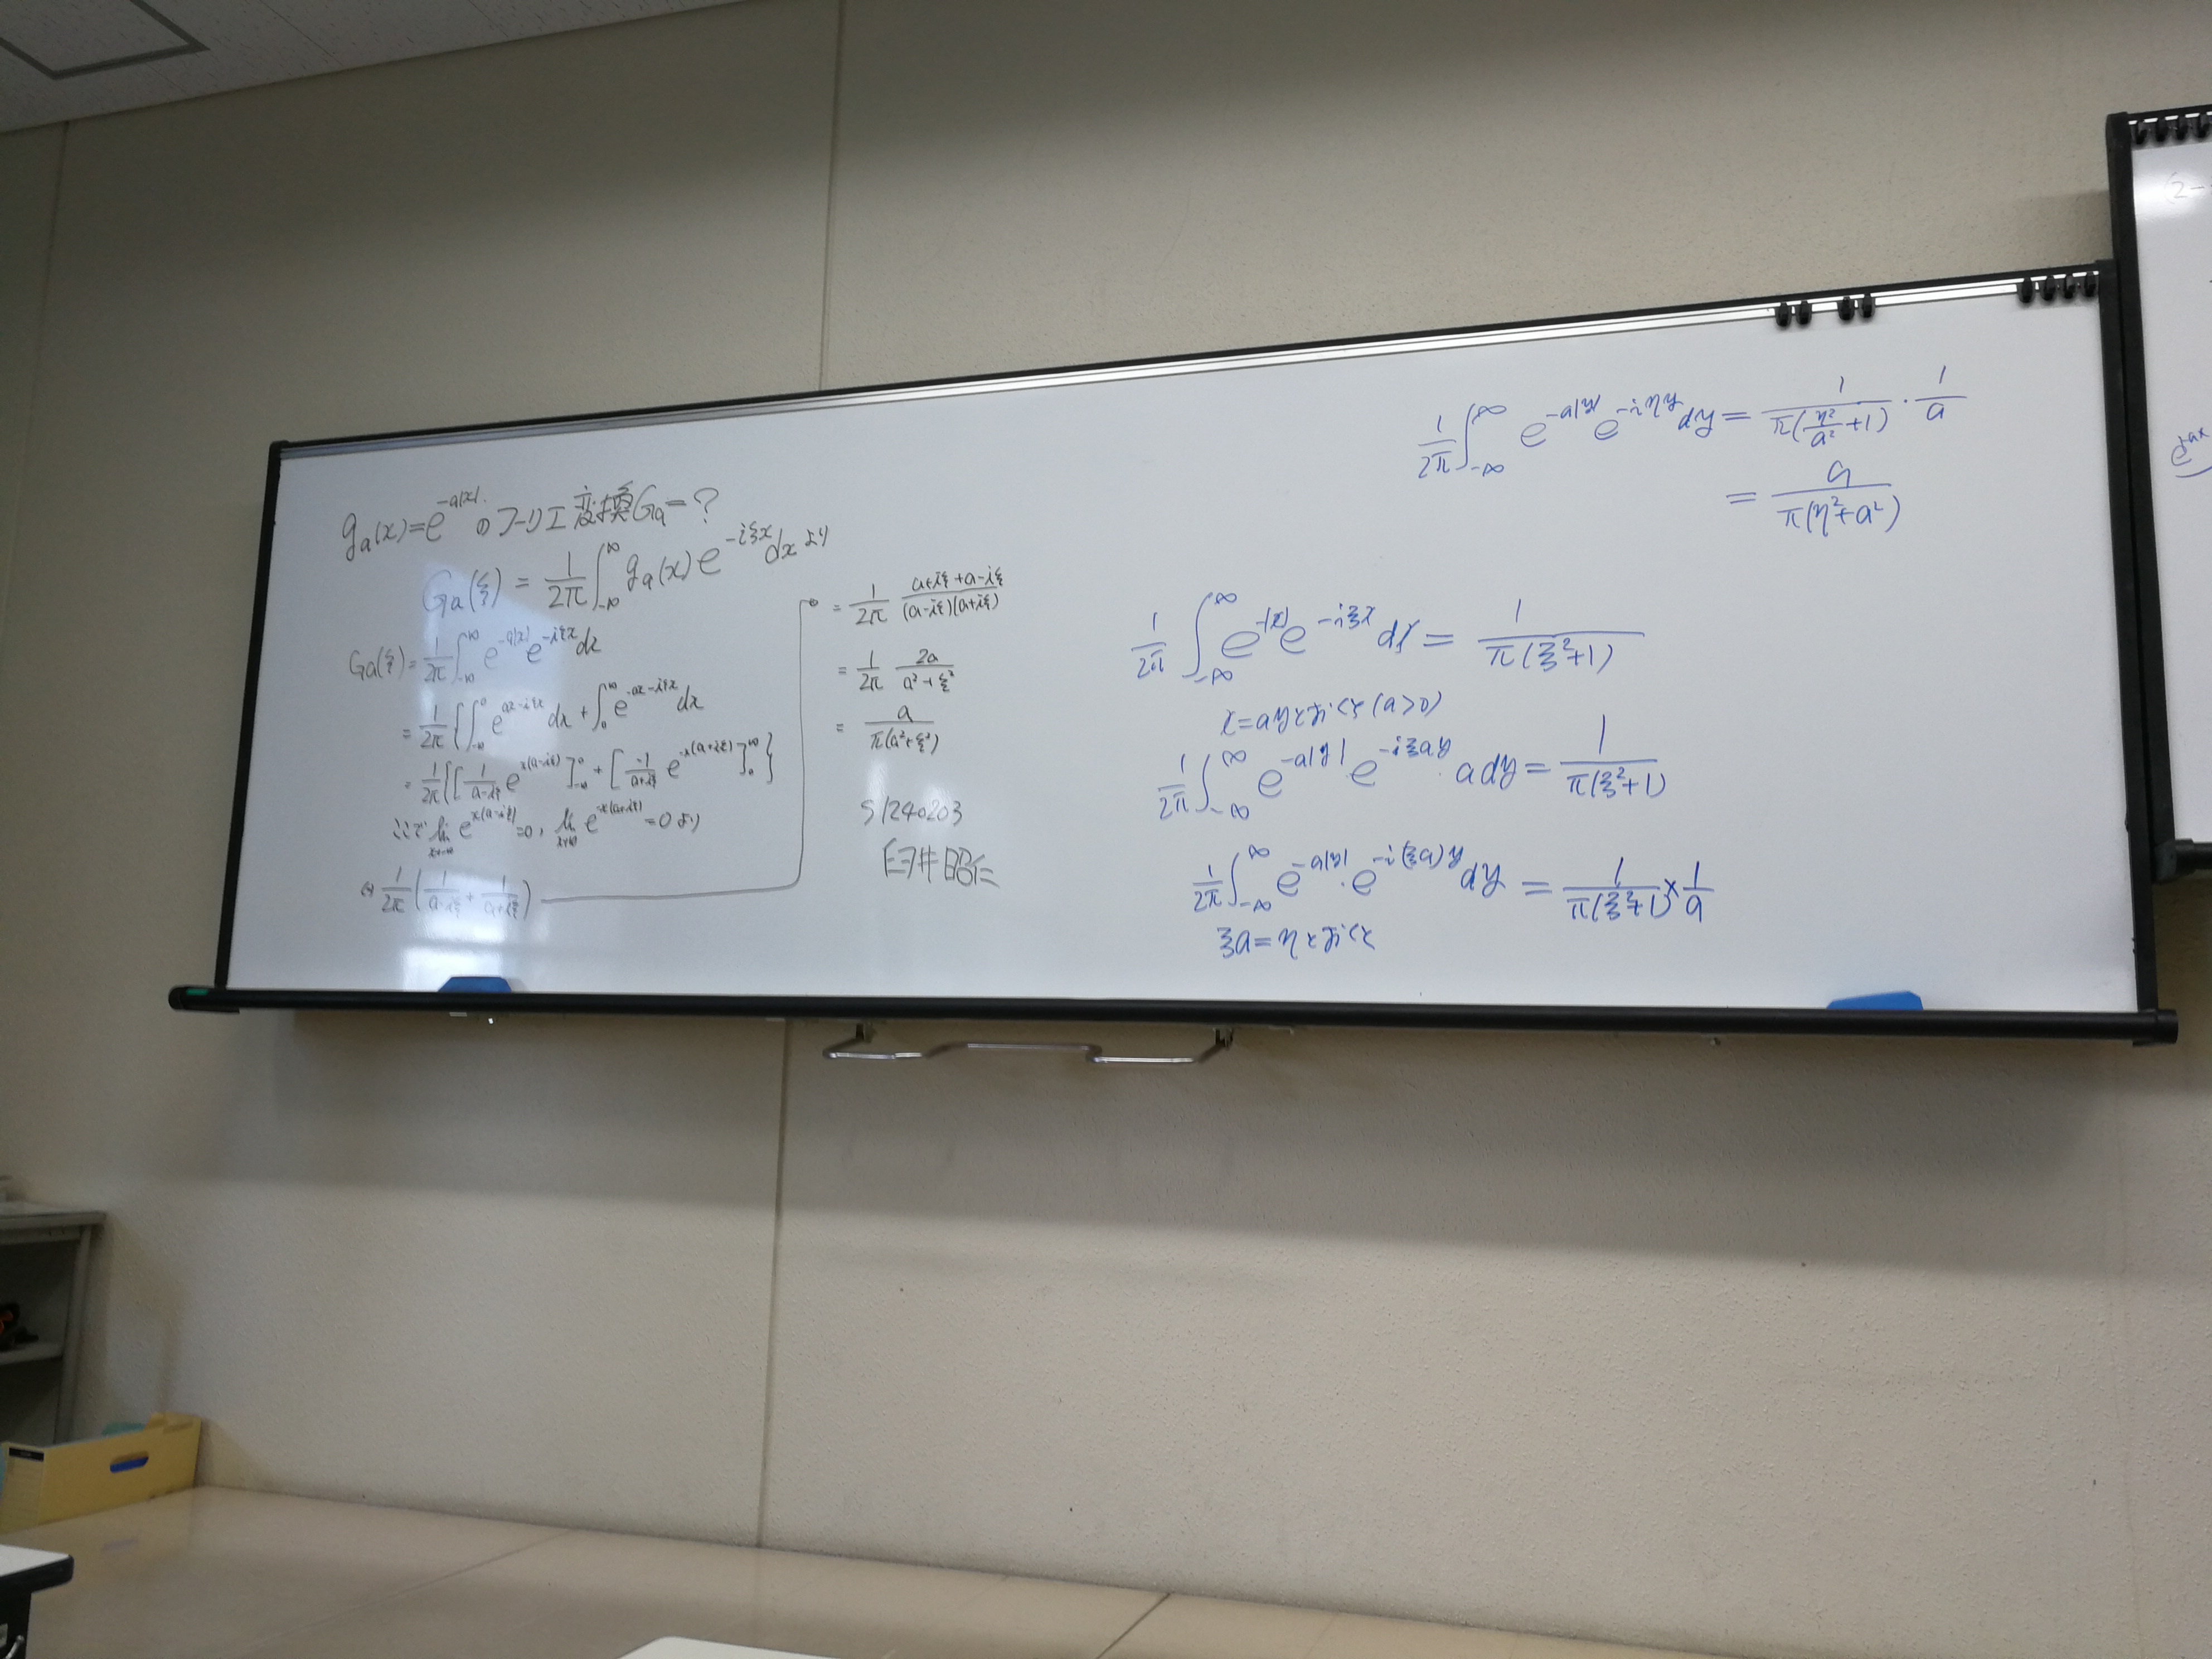 g_a(x)=e^{-a|x|} のフーリエ変換G_a=?
G_a(ξ) = \frac{1}{2π}∫_{-∞}^{∞} g_a(x) e^{-iξx}dx より
G_a(ξ) = \frac{1}{2π}∫_{-∞}^{∞} e^{-a|x|} e^{-iξx}dx
= \frac{1}{2π}{∫_{-∞}^{0} e^{ax-iξx}dx + ∫_{0}^{∞} e^{-ax-iξx}dx
= \frac{1}{2π}{[\frac{1}{a-iξ} e^{x(a-iξ)}]_{-∞}^{0} + [\frac{-1}{a+iξ} e^{-x(a+iξ)}]_{0}^{∞}}
ここで lim_{x→-∞} e^{x(a-iξ)}=0, lim_{x→∞} e^{-x(a+iξ)}=0より
\frac{1}{2π}(\frac{1}{a-iξ}+\frac{1}{a+iξ})
= \frac{1}{2π} \frac{a+iξ+a-iξ}{(a-iξ)(a+iξ)}
= \frac{1}{2π} \frac{2a}{a²+ξ²}
= \frac{a}{π(a²+ξ²)}
S1240203
臼井昭仁
\frac{1}{2π}∫_{-∞}^{∞} e^{-|x|}e^{-iξx}dx = \frac{1}{π(ξ²+1)}
x=ayとおくと(a>0)
\frac{1}{2π}∫_{-∞}^{∞} e^{-a|y|} e^{-iξay}・ady = \frac{1}{π(ξ²+1)}
\frac{1}{2π}∫_{-∞}^{∞} e^{-a|y|}・e^{-i(ξa)y}dy = \frac{1}{π(ξ²+1)}×\frac{1}{a}
ξa=ηとおくと
\frac{1}{2π}∫_{-∞}^{∞} e^{-a|y|}e^{-iηy}dy = \frac{1}{π(\frac{η²}{a²}+1)}・\frac{1}{a}
= \frac{a}{π(η²+a²)}
(2-
e^{iax}